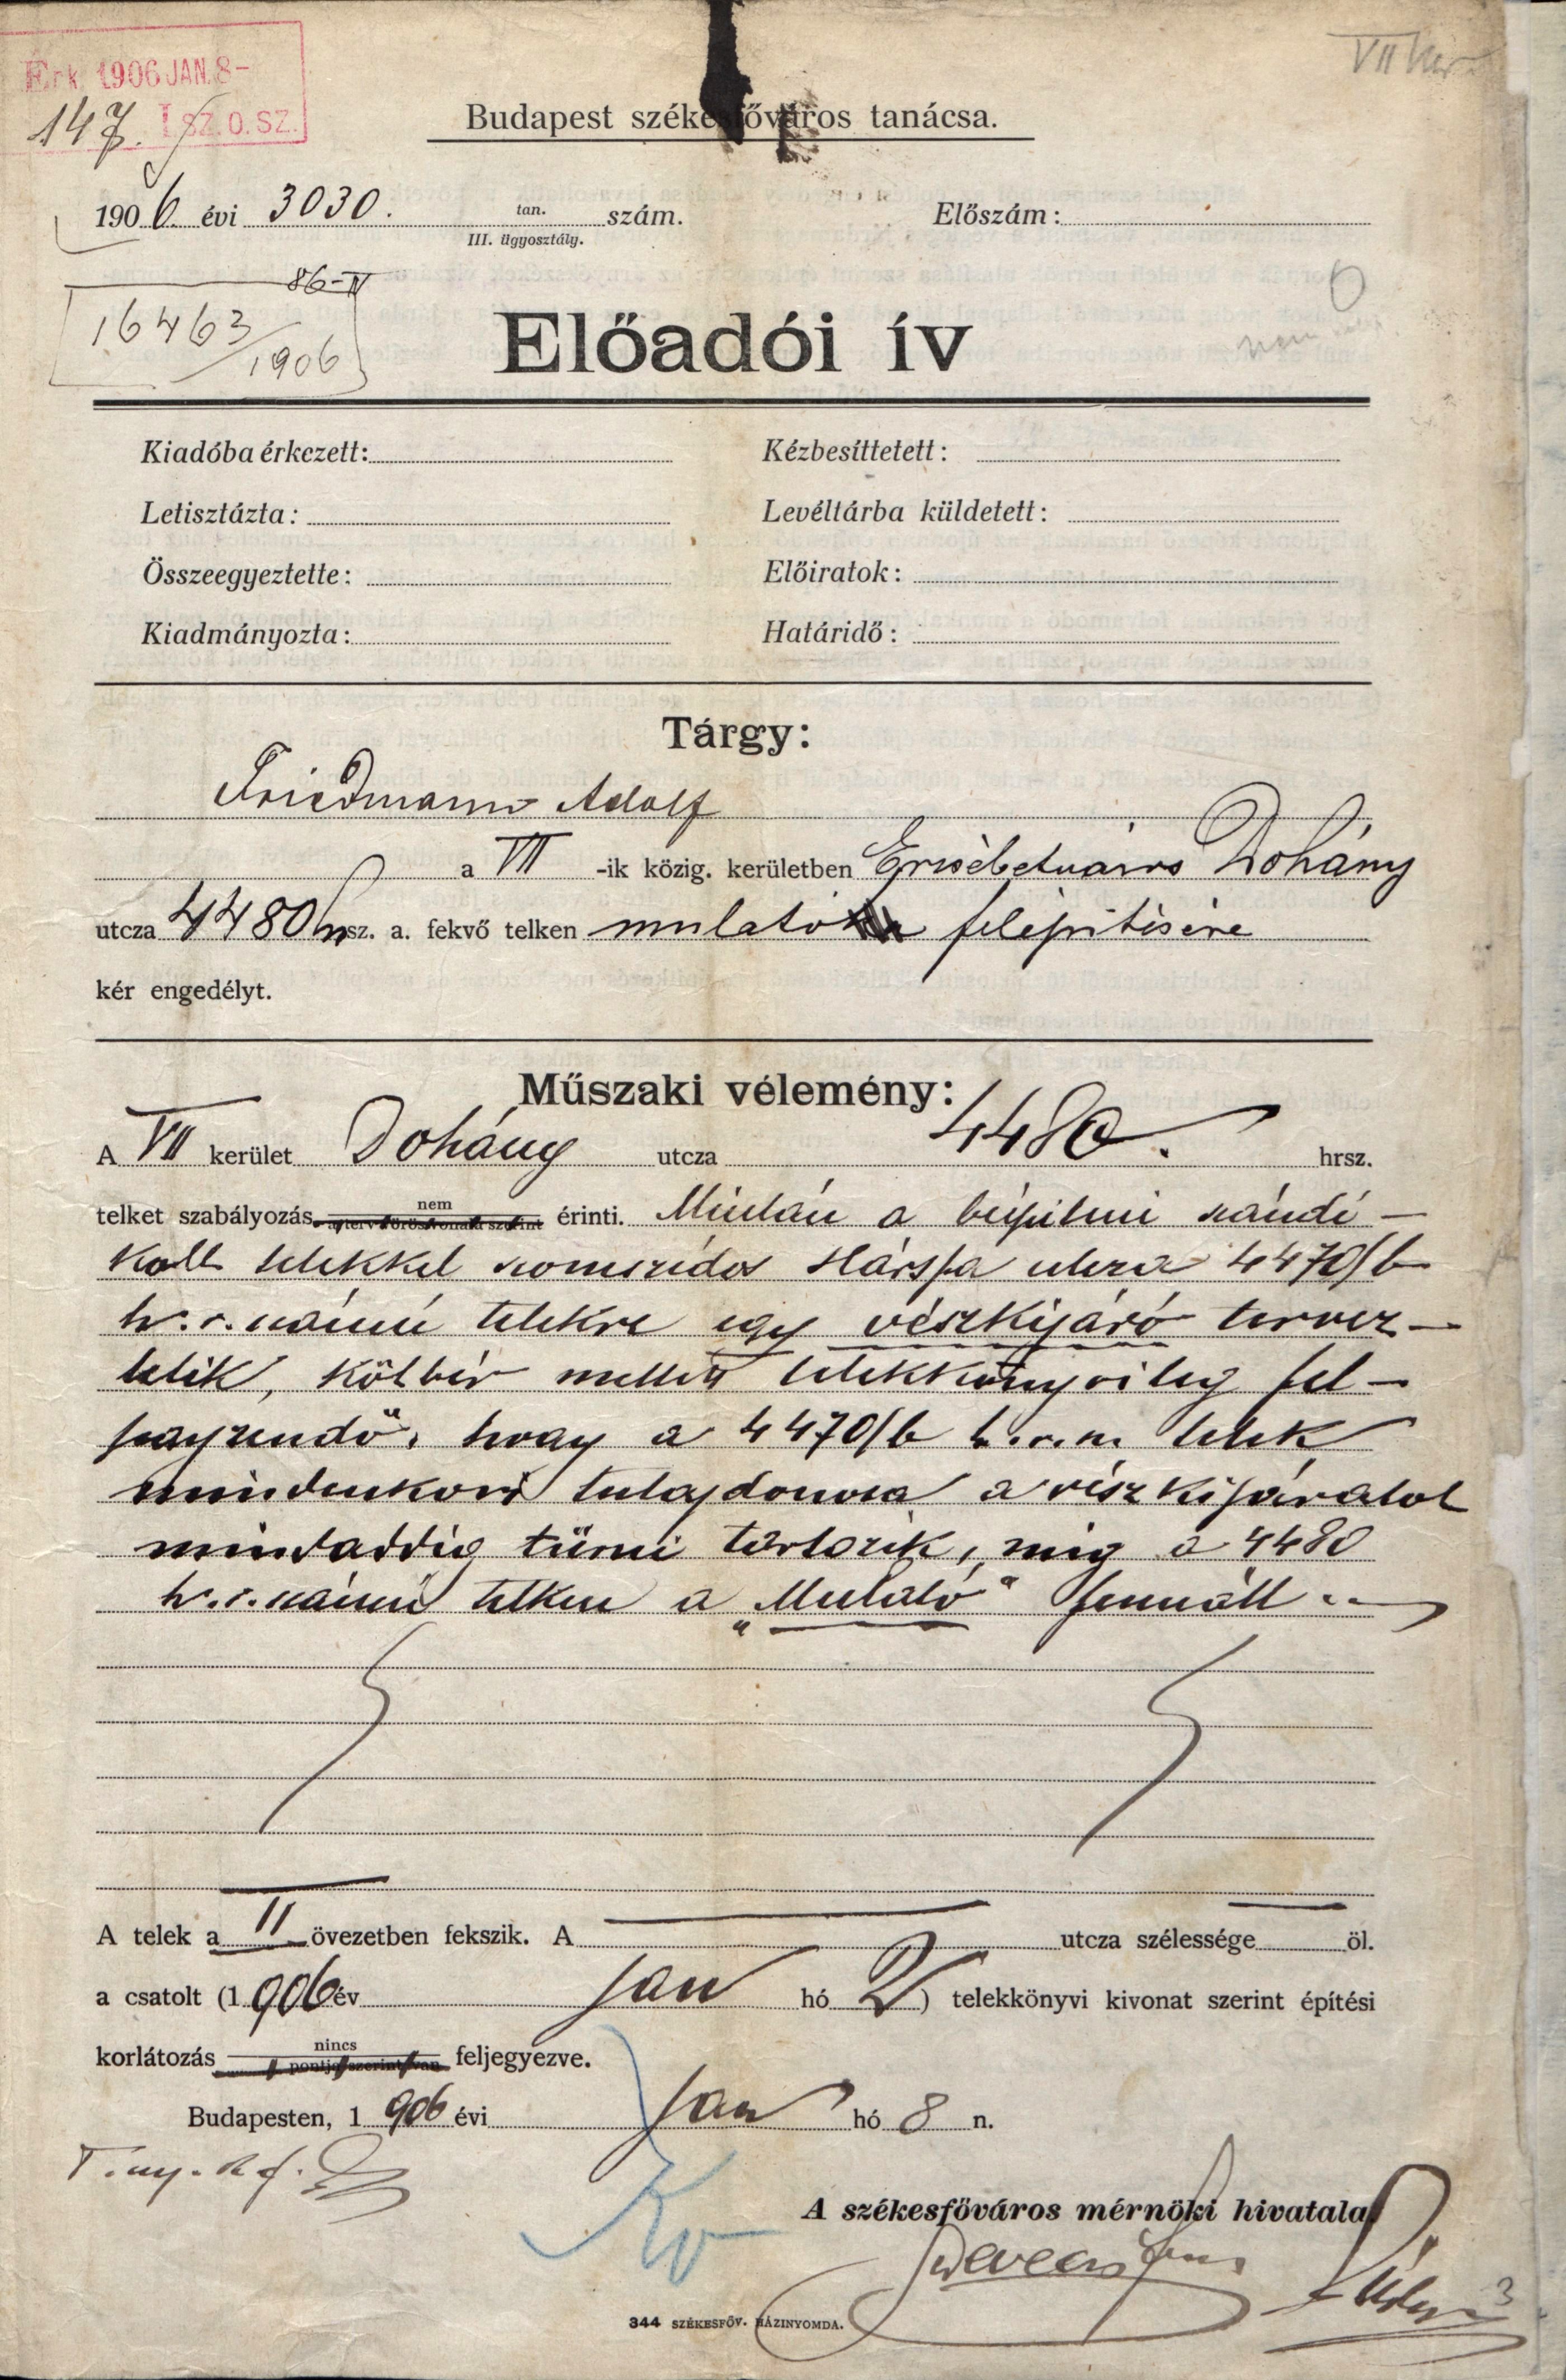 VII ker
Érk. 1906 JAN. 8-
147. I SZ. O. SZ.
Budapest székesfőváros tanácsa.
1906. évi 3030. tan. szám. Előszám:
III. ügyosztály.
86-IV
16463/1906
Előadói ív
nem
Kiadóba érkezett: Kézbesíttetett:
Letisztázta: Levéltárba küldetett:
Összeegyeztette: Előiratok:
Kiadmányozta: Határidő:
Tárgy:
Friedmann Adolf
a VII -ik közig. kerületben Erzsébetváros Dohány
utcza 4480 hrsz. a. fekvő telken mulató felépitésére
kér engedélyt.
Műszaki vélemény:
A VII kerület Dohány utcza 4480. hrsz.
telket szabályozás nem érinti. Miután a beépiteni szándé-
kolt telekkel szomszédos Hársfa utcza 4470/b
h.r.számú telekre egy vészkijáró tervez-
tetik, kötbér mellett telekkönyvileg fel-
jegyzendő, hogy a 4470/b h.r.sz. telek
mindenkori tulajdonosa a vészkijáratot
mindaddig tűrni tartozik, mig a 4480
h.r.számú telken a „Mulató" fennáll.
A telek a II övezetben fekszik. A utcza szélessége öl.
a csatolt (1906 év jan hó 2) telekkönyvi kivonat szerint építési
korlátozás nincs feljegyezve.
Budapesten, 1906 évi jan hó 8 n.
A székesfőváros mérnöki hivatala
3
344 SZÉKESFŐV. HÁZINYOMDA.